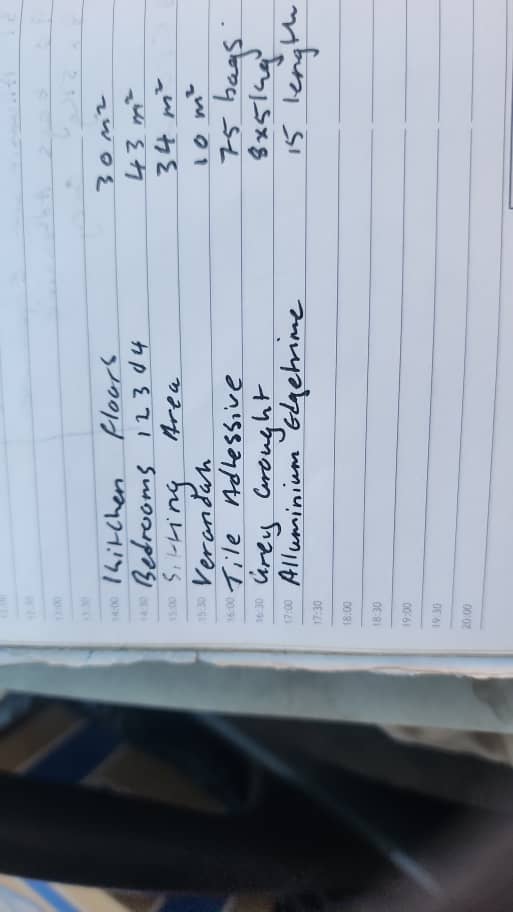 13:30
14:00 Kitchen Floors 30 m²
14:30 Bedrooms 1 2 3 d 4 43 m²
15:00 Sitting Area 34 m²
15:30 Verandah 10 m²
16:00 Tile Adhessive 75 bags
16:30 Grey Grought 8x5kg
17:00 Alluminium Edgetrime 15 length
17:30
18:00
18:30
19:00
19:30
20:00